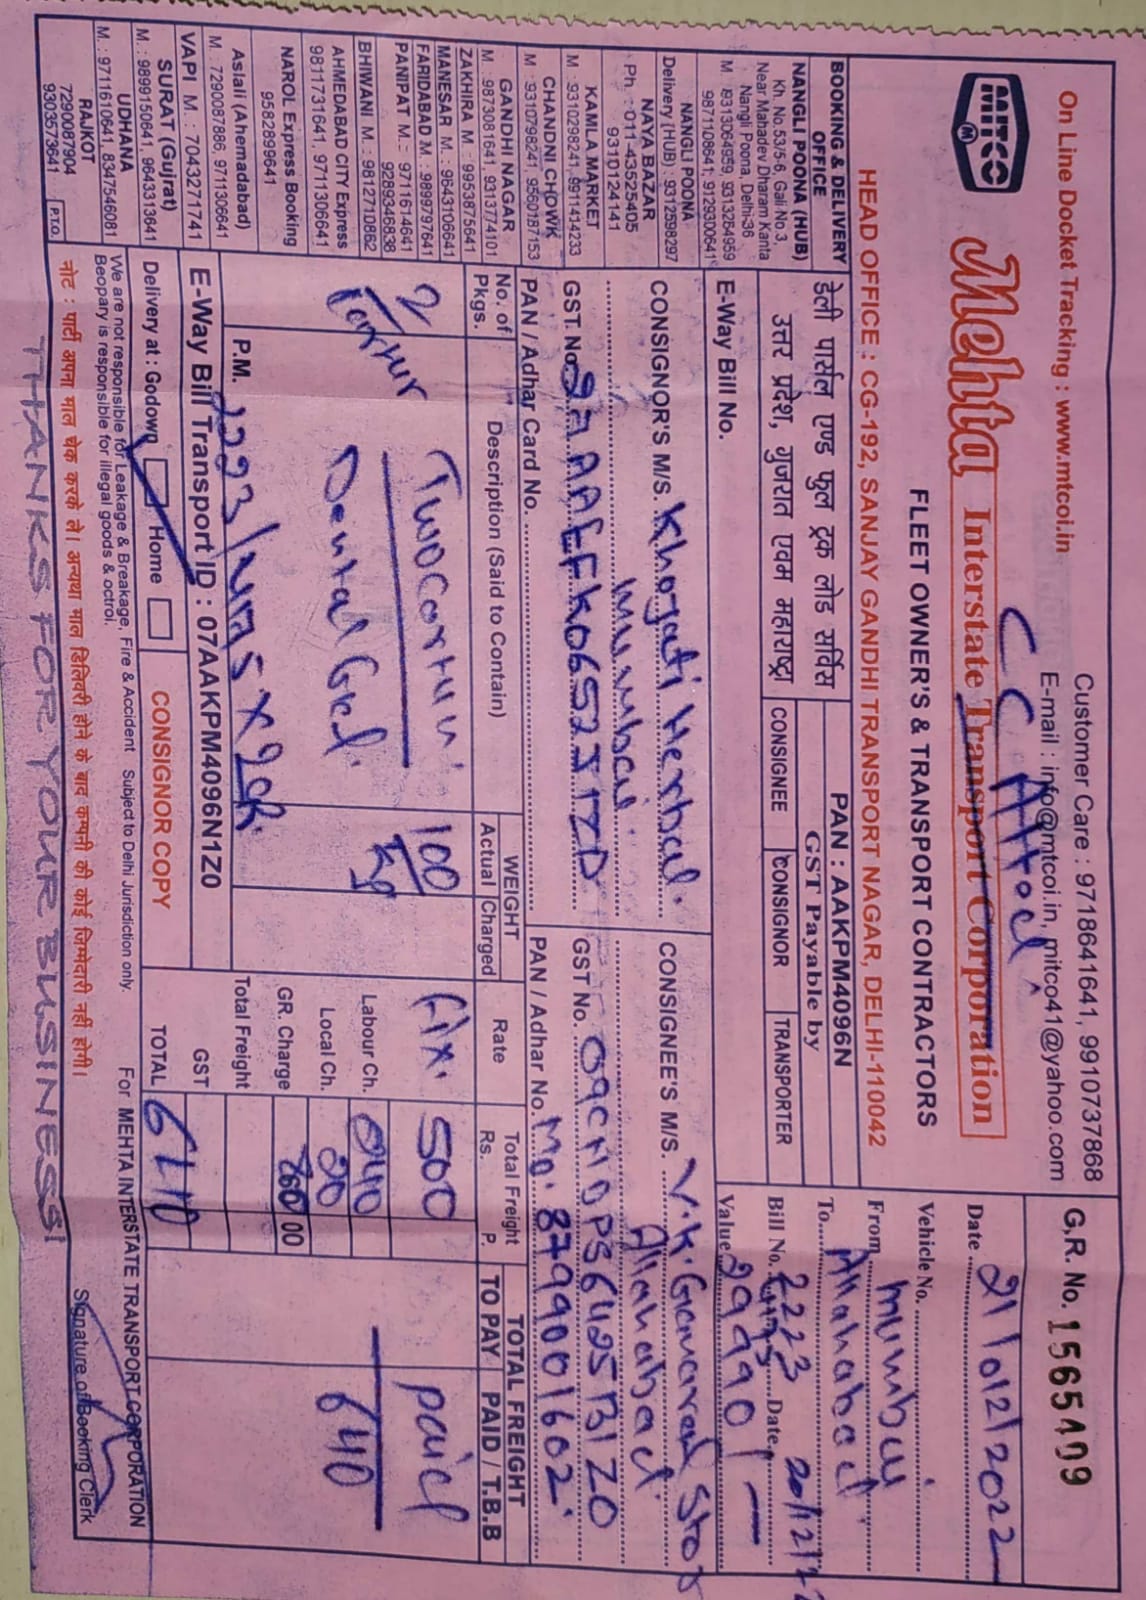 On Line Docket Tracking : www.mtcoi.in
Customer Care : 9718641641, 9910737868
E-mail : info@mtcoi.in, mitco41@yahoo.com
MITCO
M
Mehta Interstate Transport Corporation
FLEET OWNER'S & TRANSPORT CONTRACTORS
HEAD OFFICE : CG-192, SANJAY GANDHI TRANSPORT NAGAR, DELHI-110042
G.R. No. 1565409
Date 21/012/2022
Vehicle No.
From mumbai
To Allahabad
Bill No. 2223 Date 20/12/22
Value 29990/-
BOOKING & DELIVERY
OFFICE
NANGLI POONA (HUB)
Kh. No.53/5-6, Gali No.3,
Near Mahadev Dharam Kanta
Nangli Poona, Delhi-36
M.:9313064959, 9313264959
9871108641, 9129300641
NANGLI POONA
Delivery (HUB) : 9312598297
NAYA BAZAR
Ph. : 011-43525405
9310124141
KAMLA MARKET
M : 9310298241, 9911414233
CHANDNI CHOWK
M : 9310798241, 9560187153
GANDHI NAGAR
M : 9873081641, 9313774101
ZAKHIRA M. : 9953875641
MANESAR M. : 9643106641
FARIDABAD M. : 9899797641
PANIPAT M. : 9711614641
9289346838
BHIWANI M. : 9812710862
AHMEDABAD CITY Express
9811731641, 9711306641
NAROL Express Booking
9582899641
Aslali (Ahemadabad)
M. 7290087886, 9711306641
VAPI M. : 7043271741
SURAT (Gujrat)
M. : 9899150841, 9643313641
UDHANA
M. : 9711610641, 8347546081
RAJKOT
7290087904
9303573641
P.T.O.
डेली पार्सल एण्ड फुल ट्रक लोड सर्विस
उत्तर प्रदेश, गुजरात एवम महाराष्ट्र
PAN : AAKPM4096N
GST Payable by
CONSIGNEE CONSIGNOR TRANSPORTER
E-Way Bill No.
CONSIGNOR'S M/S. Khojati Herbal
Mumbai
GST. No. 27AAEFK0652J1ZD
PAN / Adhar Card No.
CONSIGNEE'S M/S. V.K. General Stor
Allahabad
GST No. 09CMOPS6425B1Z0
PAN / Adhar No. Mo. 8799001602
No. of Pkgs.
Description (Said to Contain)
WEIGHT
Actual Charged
Rate
Total Freight
Rs. P.
TOTAL FREIGHT
TO PAY PAID / T.B.B
2
Two Cartun
Dental Gel
100
Kg
fix. 500
paid
Labour Ch. 040
Local Ch.
640
GR. Charge 00
Total Freight
GST
TOTAL
P.M.
E-Way Bill Transport ID : 07AAKPM4096N1Z0
Delivery at : Godown Home
CONSIGNOR COPY
We are not responsible for Leakage & Breakage, Fire & Accident Subject to Delhi Jurisdiction only.
Beopary is responsible for illegal goods & octroi.
For MEHTA INTERSTATE TRANSPORT CORPORATION
Signature of Booking Clerk
नोट : पार्टी अपना माल चेक करके ले। अन्यथा माल डिलिवरी होने के बाद कम्पनी की कोई जिम्मेदारी नहीं होगी।
THANKS FOR YOUR BUSINESS!